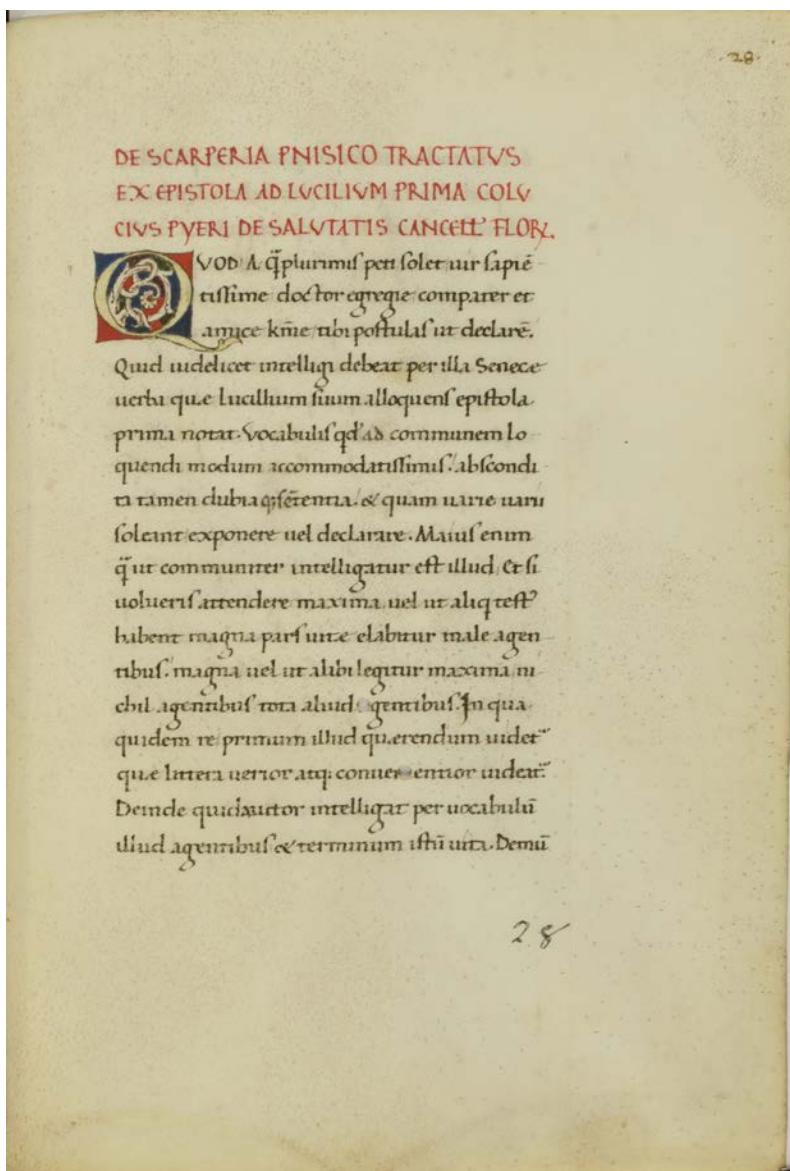 ·28·
DE SCARPERIA PNISICO TRACTATVS
EX EPISTOLA AD LVCILIVM PRIMA COLV
CIVS PYERI DE SALVTATIS CANCELL' FLOR
QVOD A q̃plurimis peti solet uir sapiẽ
tissime doctor egregie compater et
amice km̃e tibi postulas ut declarẽ.
Quid uidelicet intelligi debeat per illa Senece
uerba quae lucillium suum alloquens epistola
prima notat. Vocabulis qd' ad communem lo
quendi modum accommodatissimis. abscondi
ta tamen dubiaq; sẽtentia. & quam uarie uarii
soleant exponere uel declarare. Maius enim
q̃ ut communiter intelligatur est illud. Et si
uolueris attendere maxima uel ut aliq
habent magna pars uitae elabitur male agen
tibus. magna uel ut alibi legitur maxima ni
chil agentibus tota aliud gentibus. In qua
quidem re primum illud quaerendum uidet
quae littera uerior atq; conuenientior uideat
Deinde quid auctor intelligat per uocabulũ
illud agentibus & terminum istũ uita. Demũ
28